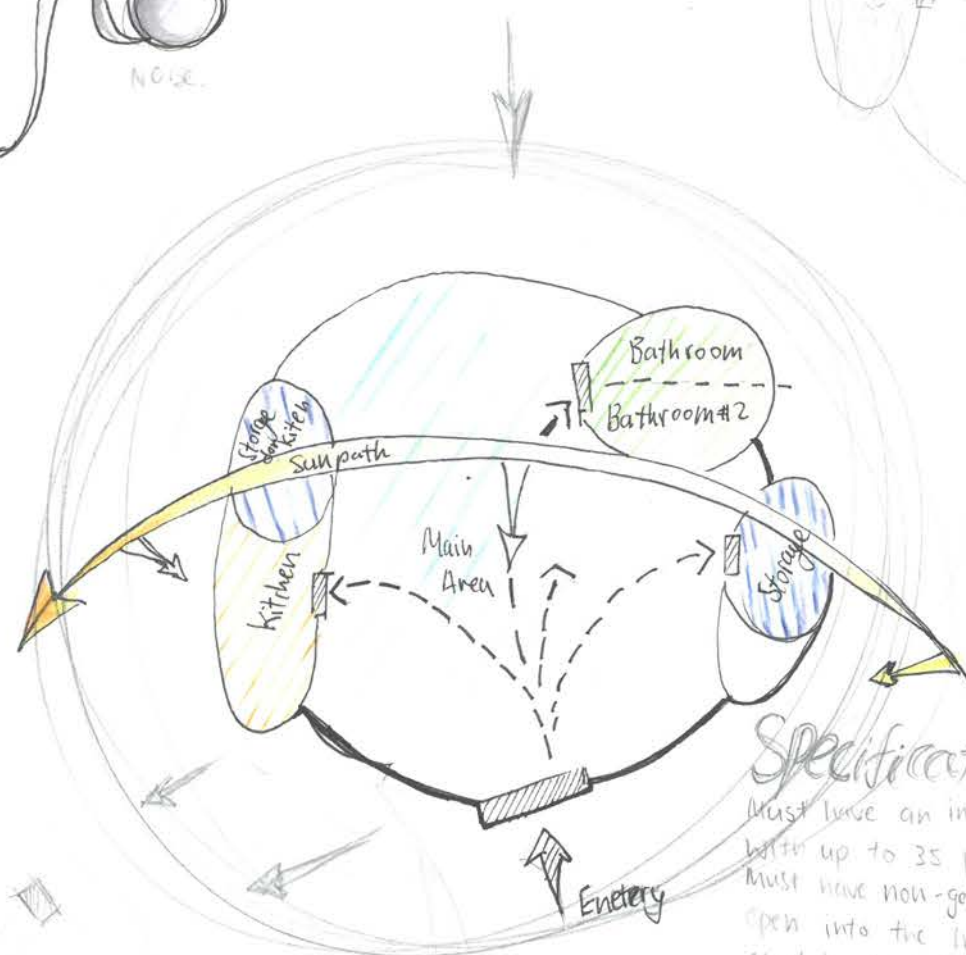 NOISE.
Bathroom
Bathroom#2
Storage
for Kitchen
Sunpath
Main
Area
Kitchen
Storage
Enetery
Must have an
with up to 35
Must have non-
open into the